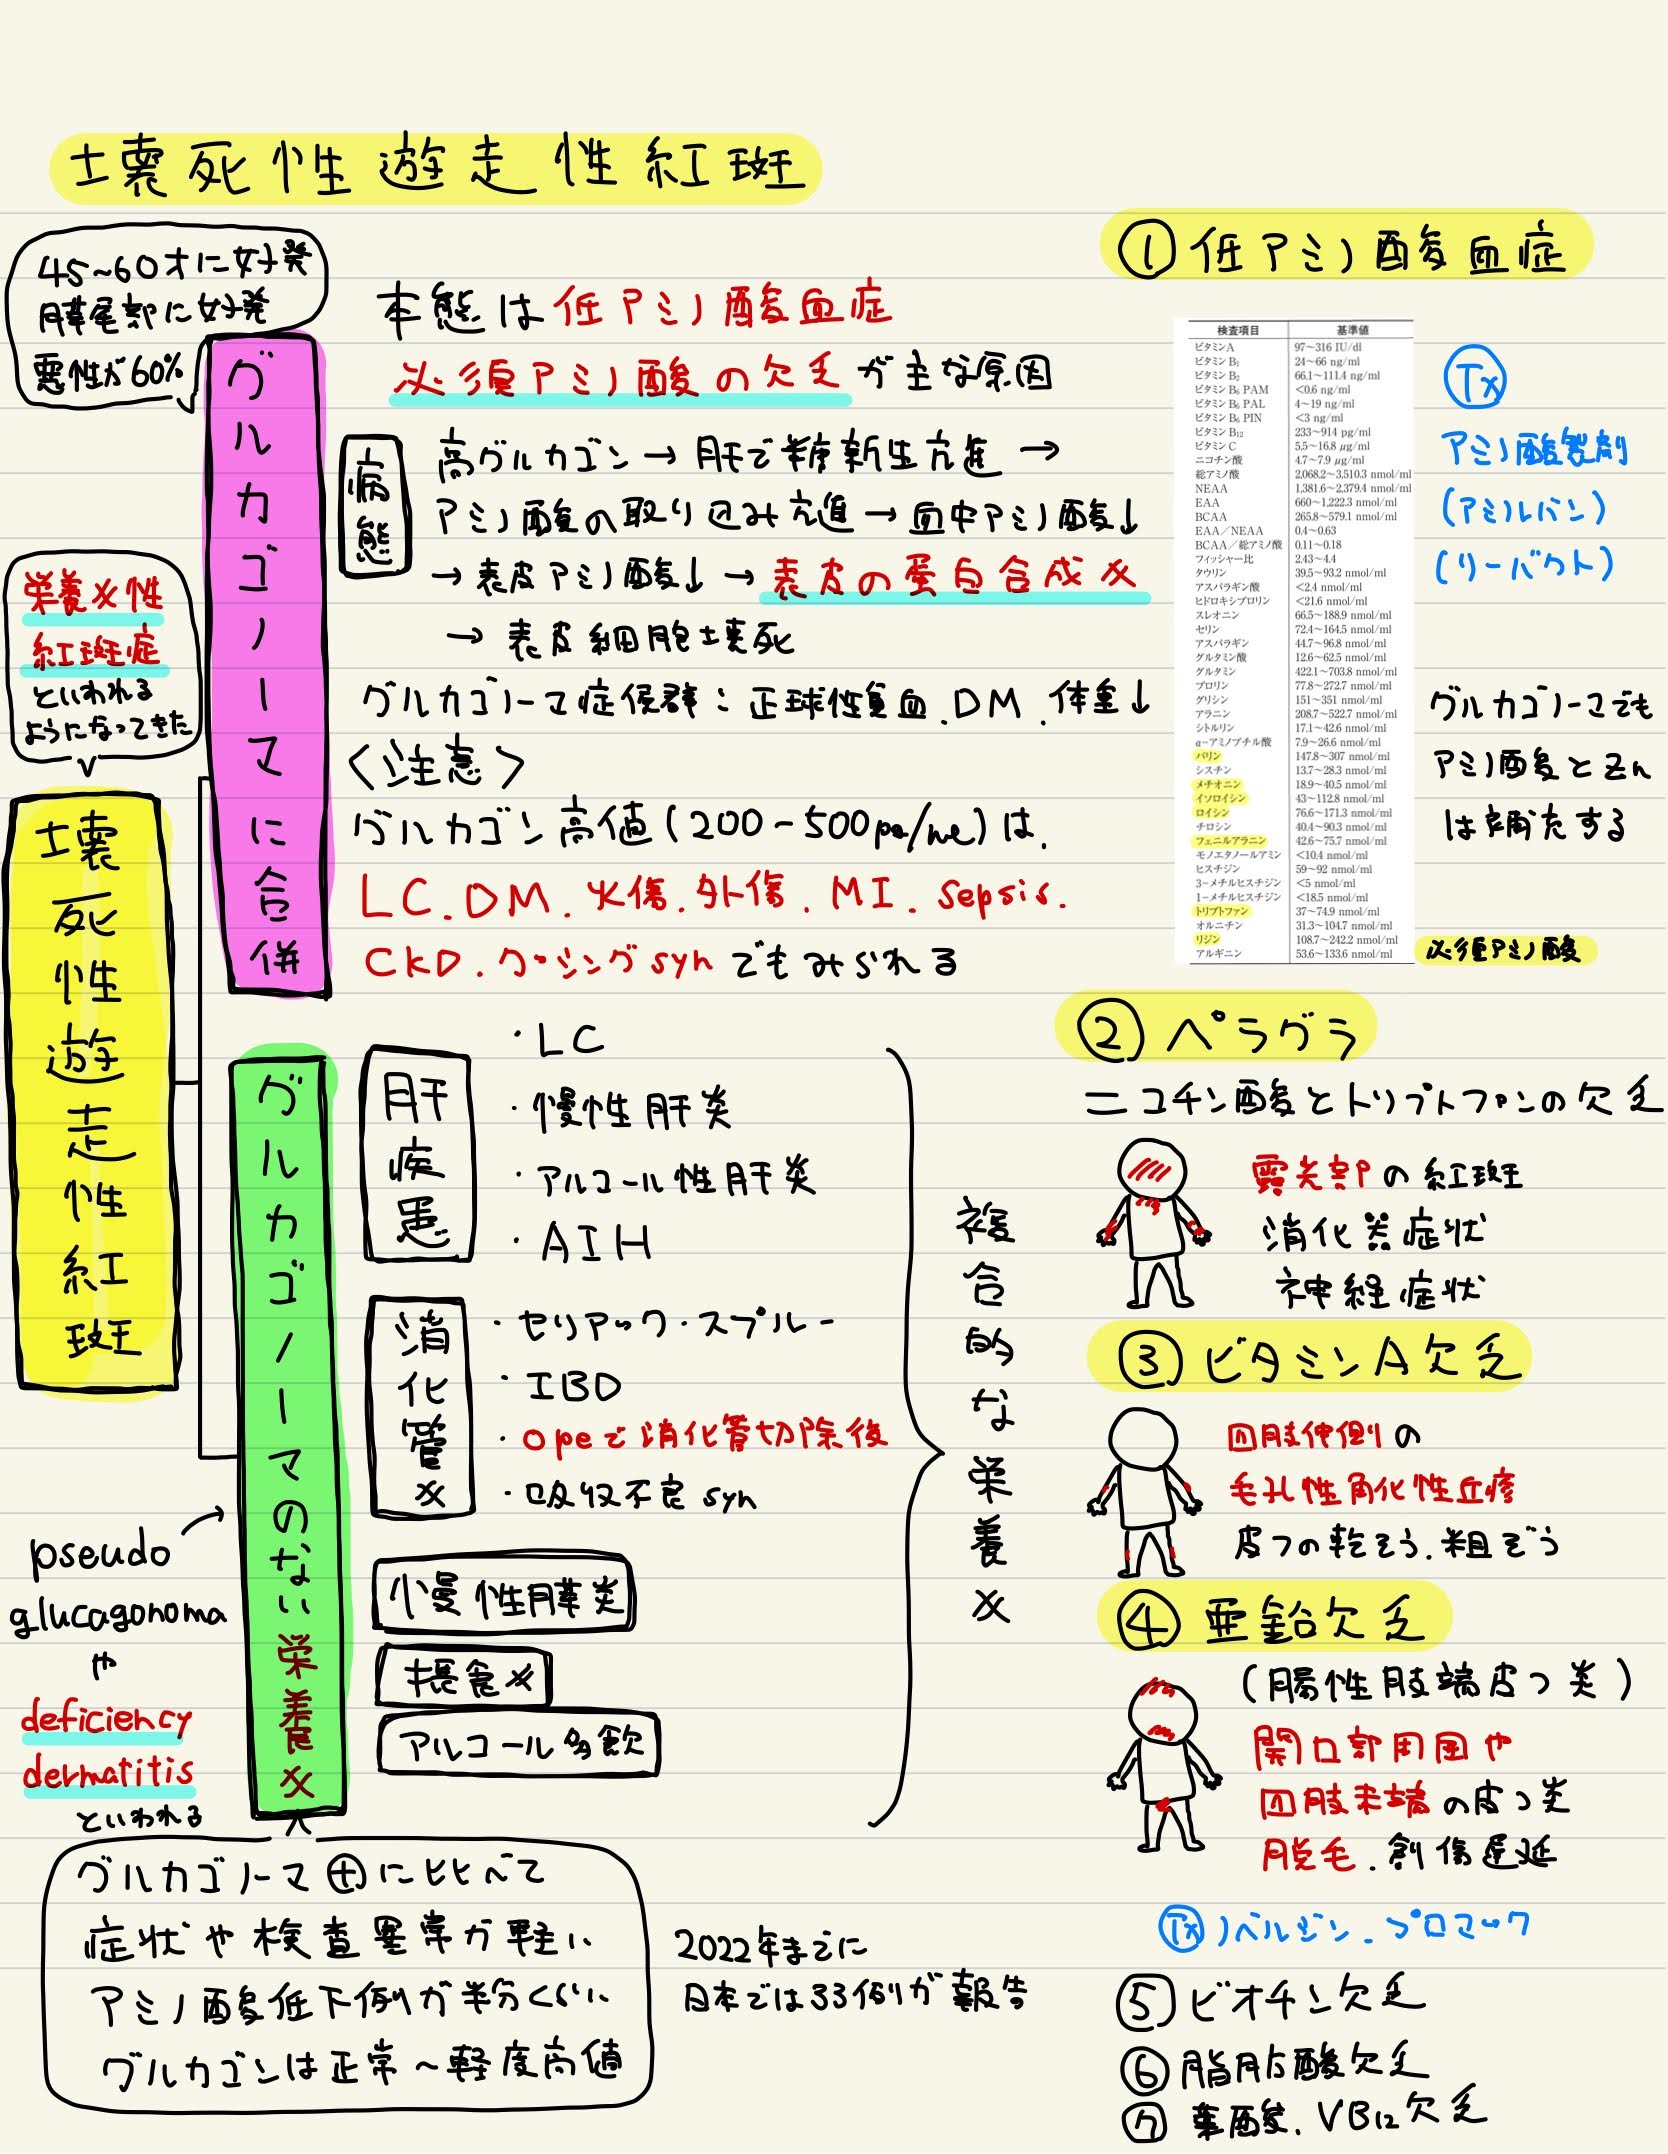 壊死性遊走性紅斑
45~60才に好発
膵尾部に好発
悪性が60%
グルカゴノーマに合併
本態は低アミノ酸血症
必須アミノ酸の欠乏が主な原因
病態
高グルカゴン→肝で糖新生亢進→
アミノ酸の取り込み亢進→血中アミノ酸↓
→表皮アミノ酸↓→表皮の蛋白合成×
→表皮細胞壊死
グルカゴノーマ症候群:正球性貧血.DM.体重↓
<注意>
グルカゴン高値(200-500pg/ml)は.
LC.DM.火傷.外傷.MI.sepsis.
CKD.クッシングsynでもみられる
栄養×性
紅斑症
といわれる
ようになってきた
壊死性遊走性紅斑
グルカゴノーマのない栄養×
pseudo
glucagonoma
や
deficiency
dermatitis
といわれる
肝疾患
・LC
・慢性肝炎
・アルコール性肝炎
・AIH
消化管×
・セリアック・スプルー
・IBD
・opeで消化管切除後
・吸収不良syn
慢性膵炎
摂食×
アルコール多飲
複合的な栄養×
グルカゴノーマ⊕に比べて
症状や検査異常が軽い
アミノ酸低下例が半分くらい
グルカゴンは正常~軽度高値
2022年までに
日本では33例が報告
①低アミノ酸血症
検査項目 基準値
ビタミンA 97~316 IU/dl
ビタミンB₁ 24~66 ng/ml
ビタミンB₂ 66.1~111.4 ng/ml
ビタミンB₆ PAM <0.6 ng/ml
ビタミンB₆ PAL 4~19 ng/ml
ビタミンB₆ PIN <3 ng/ml
ビタミンB₁₂ 233~914 pg/ml
ビタミンC 5.5~16.8 μg/ml
ニコチン酸 4.7~7.9 μg/ml
総アミノ酸 2,068.2~3,510.3 nmol/ml
NEAA 1,381.6~2,379.4 nmol/ml
EAA 660~1,222.3 nmol/ml
BCAA 265.8~579.1 nmol/ml
EAA/NEAA 0.4~0.63
BCAA/総アミノ酸 0.11~0.18
フィッシャー比 2.43~4.4
タウリン 39.5~93.2 nmol/ml
アスパラギン酸 <2.4 nmol/ml
ヒドロキシプロリン <21.6 nmol/ml
スレオニン 66.5~188.9 nmol/ml
セリン 72.4~164.5 nmol/ml
アスパラギン 44.7~96.8 nmol/ml
グルタミン酸 12.6~62.5 nmol/ml
グルタミン 422.1~703.8 nmol/ml
プロリン 77.8~272.7 nmol/ml
グリシン 151~351 nmol/ml
アラニン 208.7~522.7 nmol/ml
シトルリン 17.1~42.6 nmol/ml
α-アミノブチル酸 7.9~26.6 nmol/ml
バリン 147.8~307 nmol/ml
シスチン 13.7~28.3 nmol/ml
メチオニン 18.9~40.5 nmol/ml
イソロイシン 43~112.8 nmol/ml
ロイシン 76.6~171.3 nmol/ml
チロシン 40.4~90.3 nmol/ml
フェニルアラニン 42.6~75.7 nmol/ml
モノエタノールアミン <10.4 nmol/ml
ヒスチジン 59~92 nmol/ml
3-メチルヒスチジン <5 nmol/ml
1-メチルヒスチジン <18.5 nmol/ml
トリプトファン 37~74.9 nmol/ml
オルニチン 31.3~104.7 nmol/ml
リジン 108.7~242.2 nmol/ml
アルギニン 53.6~133.6 nmol/ml
必須アミノ酸
Tx
アミノ酸製剤
(アミノレバン)
(リーバクト)
グルカゴノーマでも
アミノ酸と Zn
は補充する
②ペラグラ
ニコチン酸とトリプトファンの欠乏
露光部の紅斑
消化器症状
神経症状
③ビタミンA欠乏
四肢伸側の
毛孔性角化性丘疹
皮フの乾そう.粗ぞう
④亜鉛欠乏
(腸性肢端皮フ炎)
開口部周囲や
四肢末端の皮フ炎
脱毛.創傷遅延
Tx ノベルジン.プロマック
⑤ビオチン欠乏
⑥脂肪酸欠乏
⑦葉酸.VB12欠乏